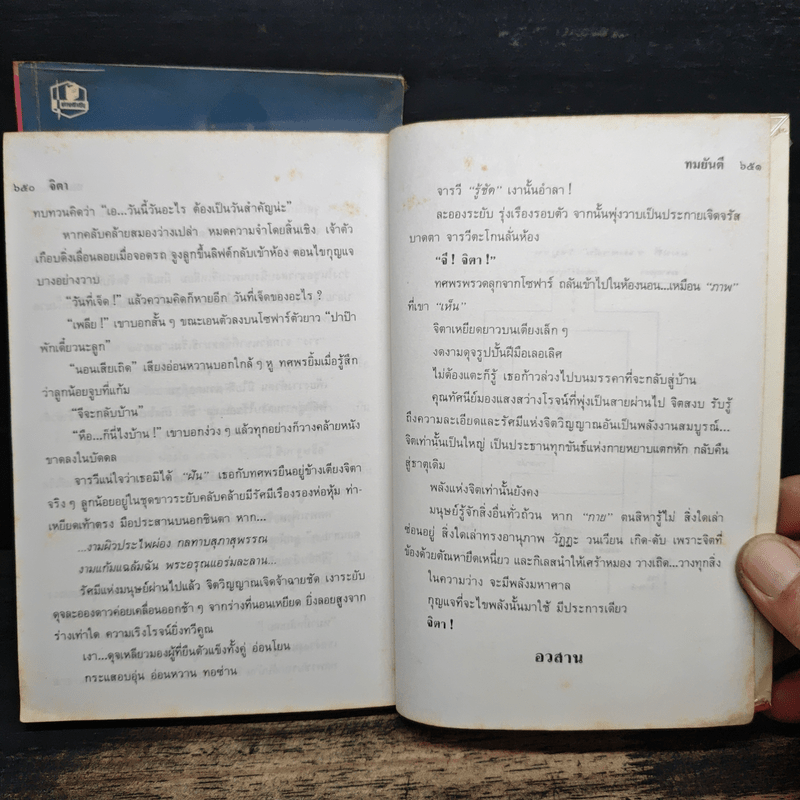 ๖๕๐ จิตา
ทบทวนคิดว่า “เอ...วันนี้วันอะไร ต้องเป็นวันสำคัญน่ะ”
หากคลับคล้ายสมองว่างเปล่า หมดความจำโดยสิ้นเชิง เจ้าตัว
เกือบดิ่งเลื่อนลอยเมื่อจอดรถ จูงลูกขึ้นลิฟต์กลับเข้าห้อง ตอนไขกุญแจ
บางอย่างวาบ
“วันที่เจ็ด !” แล้วความคิดก็หายอีก วันที่เจ็ดของอะไร ?
“เพลีย !” เขาบอกสั้น ๆ ขณะเอนตัวลงบนโซฟาร์ตัวยาว “ปาป๊า
พักเดี๋ยวนะลูก”
“นอนเสียเถิด” เสียงอ่อนหวานบอกใกล้ ๆ หู ทศพรยิ้มเมื่อรู้สึก
ว่าลูกน้อยจูบที่แก้ม
“จีจะกลับบ้าน”
“หือ...ก็นี่ไงบ้าน !” เขาบอกง่วง ๆ แล้วทุกอย่างก็วางคล้ายหนัง
ขาดลงในบัดดล
จารวีแน่ใจว่าเธอมิได้ “ฝัน” เธอกับทศพรยืนอยู่ข้างเตียงจิตา
จริง ๆ ลูกน้อยอยู่ในชุดขาวระยับคลับคล้ายมีรัศมีเรืองรองห่อหุ้ม ท่า-
เหยียดเท้าตรง มือประสานบนอกชินตา หาก...
...งามผิวประไพผ่อง กลทาบสุภาสุพรรณ
งามแก้มแฉล้มฉัน พระอรุณแอร่มละลาน...
รัศมีแห่งมนุษย์ผ่านไปแล้ว จิตวิญญาณเจิดจ้าฉายชัด เงาระยับ
ดุจละอองดาวค่อยเคลื่อนออกช้า ๆ จากร่างที่นอนเหยียด ยิ่งลอยสูงจาก
ร่างเท่าใด ความเริงโรจน์ยิ่งทวีคูณ
เงา...ดุจเหลียวมองผู้ที่ยืนตัวแข็งทั้งคู่ อ่อนโยน
กระแสอบอุ่น อ่อนหวาน ทอซ่าน
ทมยันตี ๖๕๑
จารวี “รู้ชัด” เงานั้นอำลา !
ละอองระยับ รุ่งเรืองรอบตัว จากนั้นพุ่งวาบเป็นประกายเจิดจรัส
บาดตา จารวีตะโกนลั่นห้อง
“จี ! จิตา !”
ทศพรพรวดลุกจากโซฟาร์ ถลันเข้าไปในห้องนอน...เหมือน “ภาพ”
ที่เขา “เห็น”
จิตาเหยียดยาวบนเตียงเล็ก ๆ
งดงามดุจรูปปั้นฝีมือเลอเลิศ
ไม่ต้องแตะก็รู้ เธอก้าวล่วงไปบนมรรคาที่จะกลับสู่บ้าน
คุณทัศนีย์มองแสงสว่างโรจน์ที่พุ่งเป็นสายผ่านไป จิตสงบ รับรู้
ถึงความละเอียดและรัศมีแห่งจิตวิญญาณอันเป็นพลังงานสมบูรณ์...
จิตเท่านั้นเป็นใหญ่ เป็นประธานทุกขันธ์แห่งกายหยาบแตกหัก กลับคืน
สู่ธาตุเดิม
พลังแห่งจิตเท่านั้นยังคง
มนุษย์รู้จักสิ่งอื่นทั่วถ้วน หาก “กาย” ตนสิหารู้ไม่ สิ่งใดเล่า
ซ่อนอยู่ สิ่งใดเล่าทรงอานุภาพ วัฏฏะ วนเวียน เกิด-ดับ เพราะจิตที่
ข้องด้วยตัณหายึดเหนี่ยว และกิเลสนำให้เศร้าหมอง วางเถิด...วางทุกสิ่ง
ในความว่าง จะมีพลังมหาศาล
กุญแจที่จะไขพลังนั้นมาใช้ มีประการเดียว
จิตา !
อวสาน